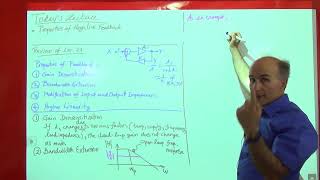 Today's Lecture
- Properties of Negative Feedback
Review of Lec. 23
Properties of Feedback
① Gain Desensitization
② Bandwidth Extension
③ Modification of Input and Output Impedances
④ Higher Linearity
X
Y
① Gain Desensitization
If A, changes due to various factors (temp, supply, frequency,
load impedance), the closed-loop gain does not change
as much
② Bandwidth Extension
Open-loop freq.
response
ω
As ω changes,